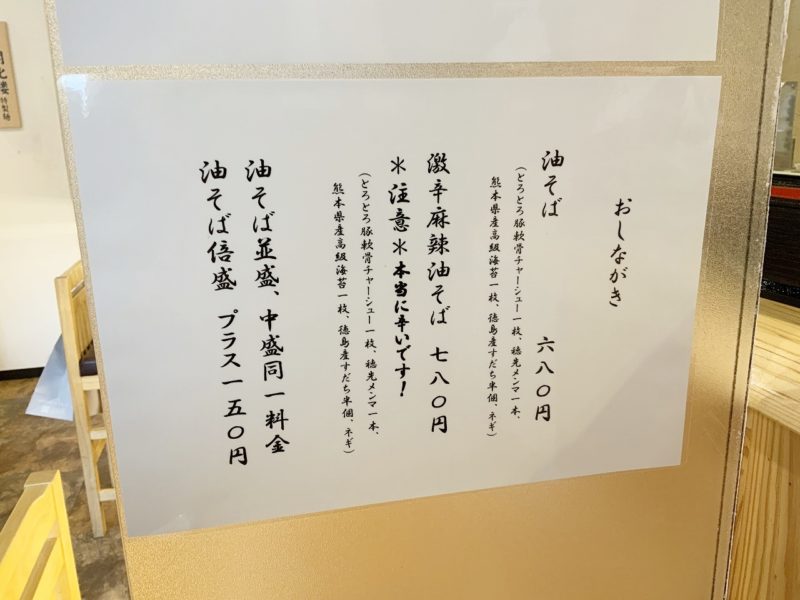 おしながき
油そば 六八〇円
(とろとろ豚軟骨チャーシュー一枚、穂先メンマ一本、
熊本県産高級海苔一枚、徳島産すだち半個、ネギ)
激辛麻辣油そば 七八〇円
＊注意＊本当に辛いです!
(とろとろ豚軟骨チャーシュー一枚、穂先メンマ一本、
熊本県産高級海苔一枚、徳島産すだち半個、ネギ)
油そば並盛、中盛同一料金
油そば倍盛 プラス一五〇円
開化楼
特製麺